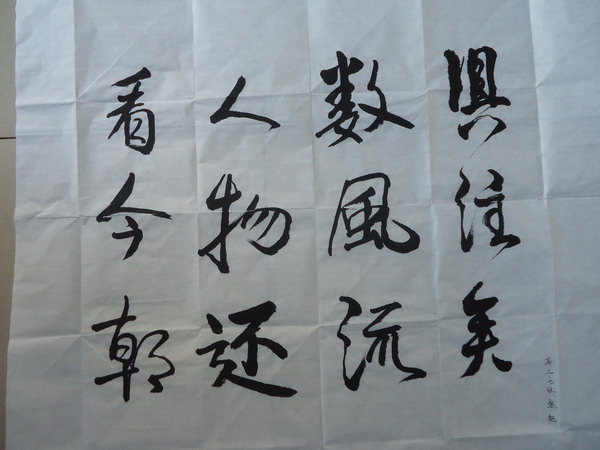 俱往矣
数風流
人物还
看今朝